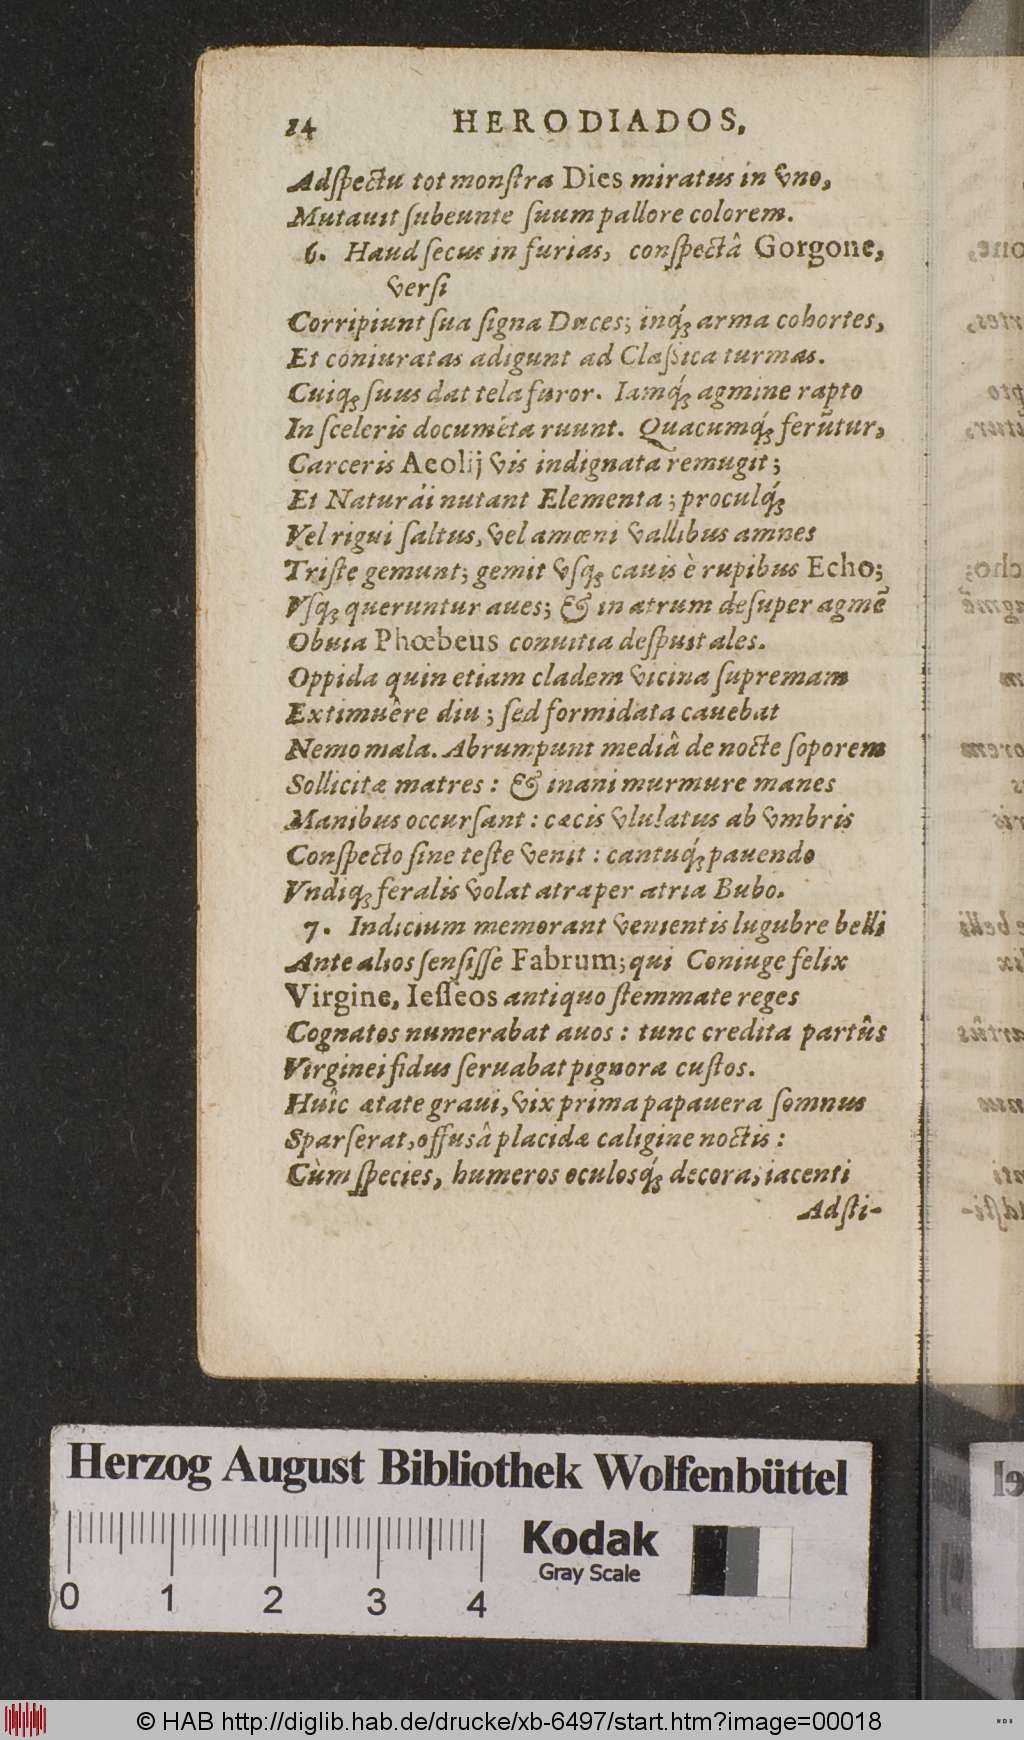 14 HERODIADOS.
Adſpectu tot monſtra Dies miratus in vno,
Mutauit ſubeunte ſuum pallore colorem.
6. Haud ſecus in furias, conſpectâ Gorgone,
verſi
Corripiunt ſua ſigna Duces; inq́ꝫ arma cohortes,
Et coniuratas adigunt ad Claſſica turmas.
Cuiqꝫ ſuus dat tela furor. Iamq́ꝫ agmine rapto
In ſceleris documēta ruunt. Quacumq́ꝫ ferūtur,
Carceris Aeolij vis indignata remugit;
Et Naturäi nutant Elementa; proculq́ꝫ
Vel rigui ſaltus, vel amœni vallibus amnes
Triſte gemunt; gemit vſqꝫ cauis è rupibus Echo;
Vſqꝫ queruntur aues; & in atrum deſuper agmē
Obuia Phœbeus conuitia deſpuit ales.
Oppida quin etiam cladem vicina ſupremam
Extimuêre diu; ſed formidata cauebat
Nemo mala. Abrumpunt mediâ de nocte ſoporem
Sollicitæ matres: & inani murmure manes
Manibus occurſant: cæcis vlulatus ab vmbris
Conſpecto ſine teſte venit: cantuq́ꝫ pauendo
Vndiqꝫ feralis volat atra per atria Bubo.
7. Indicium memorant venientis lugubre belli
Ante alios ſenſiſſe Fabrum; qui Coniuge felix
Virgine, Ieſſeos antiquo ſtemmate reges
Cognatos numerabat auos: tunc credita partûs
Virginei fidus ſeruabat pignora cuſtos.
Huîc ætate graui, vix prima papauera ſomnus
Sparſerat, offusâ placidæ caligine noctis:
Cùm ſpecies, humeros oculosq́ꝫ decora, iacenti
Adſti-
Herzog August Bibliothek Wolfenbüttel
Kodak
Gray Scale
0 1 2 3 4
© HAB http://diglib.hab.de/drucke/xb-6497/start.htm?image=00018